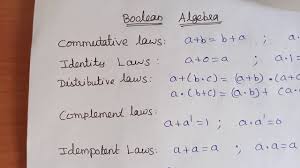 Boolean Algebra
Commutative laws: a+b = b+a ; a.
Identity Laws: a+0=a ; a.1=
Distributive laws: a+(b·c) = (a+b)·(a+c)
a·(b+c) = (a·b) + (a·
Complement laws:
a+a'=1 ; a·a'=0
Idempotent Laws: a+a=a ; a·a=